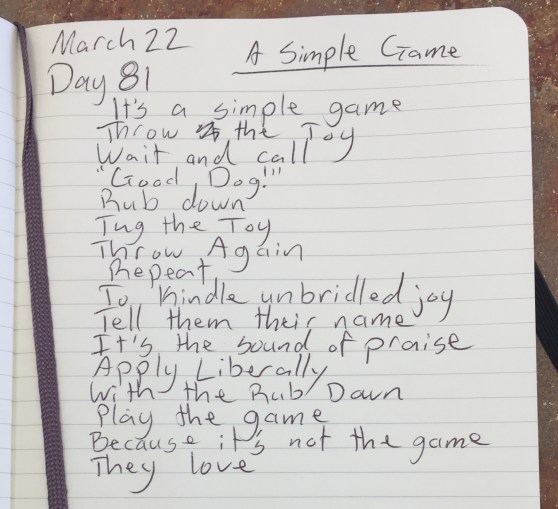 March 22
A Simple Game
Day 81
It's a simple game
Throw the Toy
Wait and call
"Good Dog!"
Rub down
Tug the Toy
Throw Again
Repeat
To Kindle unbridled joy
Tell them their name
It's the sound of praise
Apply Liberally
With the Rub Down
Play the game
Because it's not the game
They love